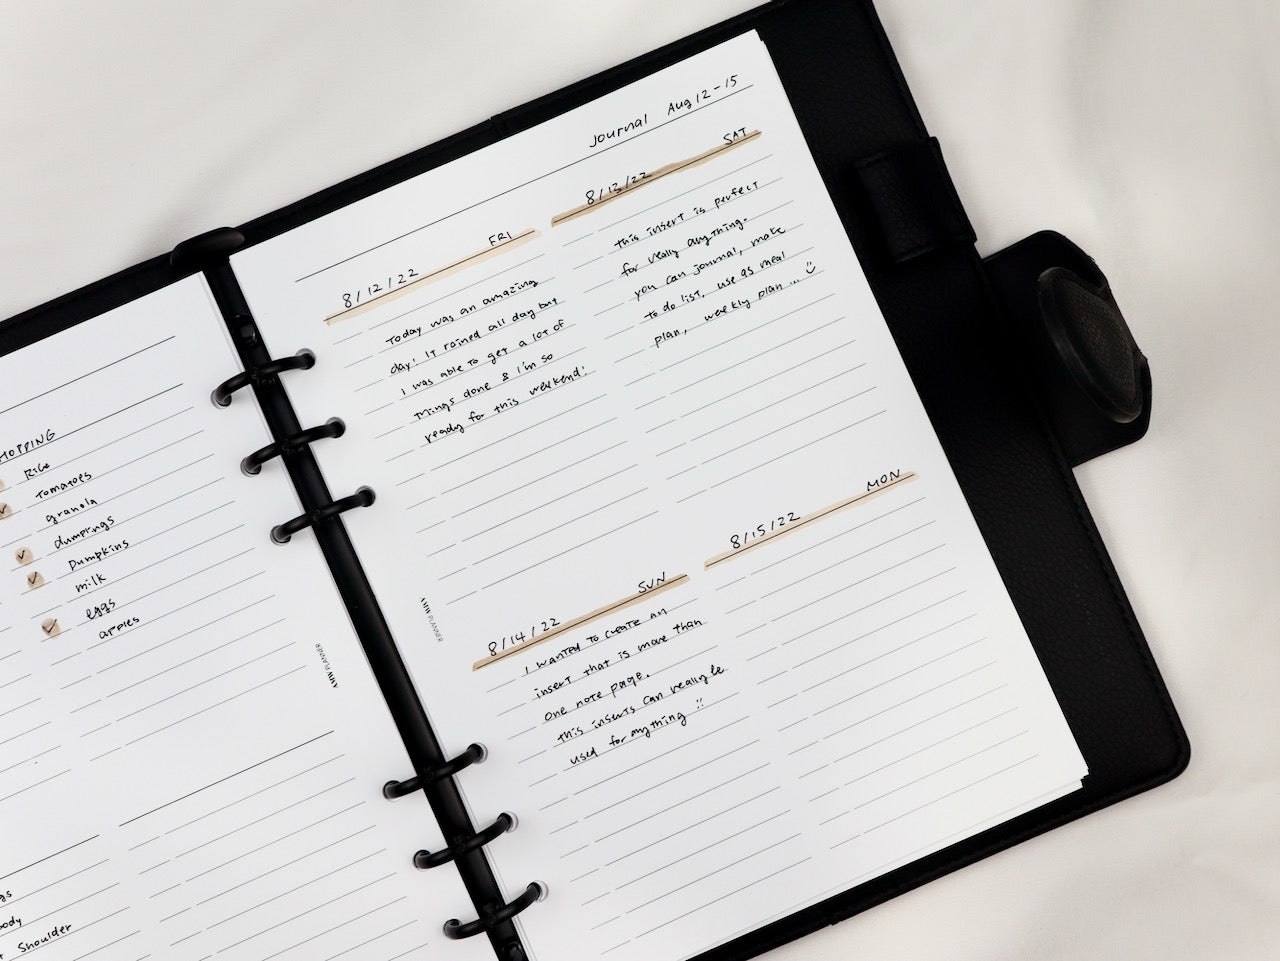 SHOPPING
Rice
tomatoes
granola
dumplings
pumpkins
milk
eggs
apples
AMW PLANNER
Shoulder
Journal Aug 12-15
8/12/22 FRI
Today was an amazing
day! It rained all day but
I was able to get a lot of
things done & I'm so
ready for this weekend!
8/13/22 SAT
this insert is perfect
for really anything.
you can journal, make
to do list, use as meal
plan, weekly plan ...
8/14/22 SUN
I wanted to create an
insert that is more than
one note page.
this inserts can really be
used for anything !!
8/15/22 MON
AMW PLANNER